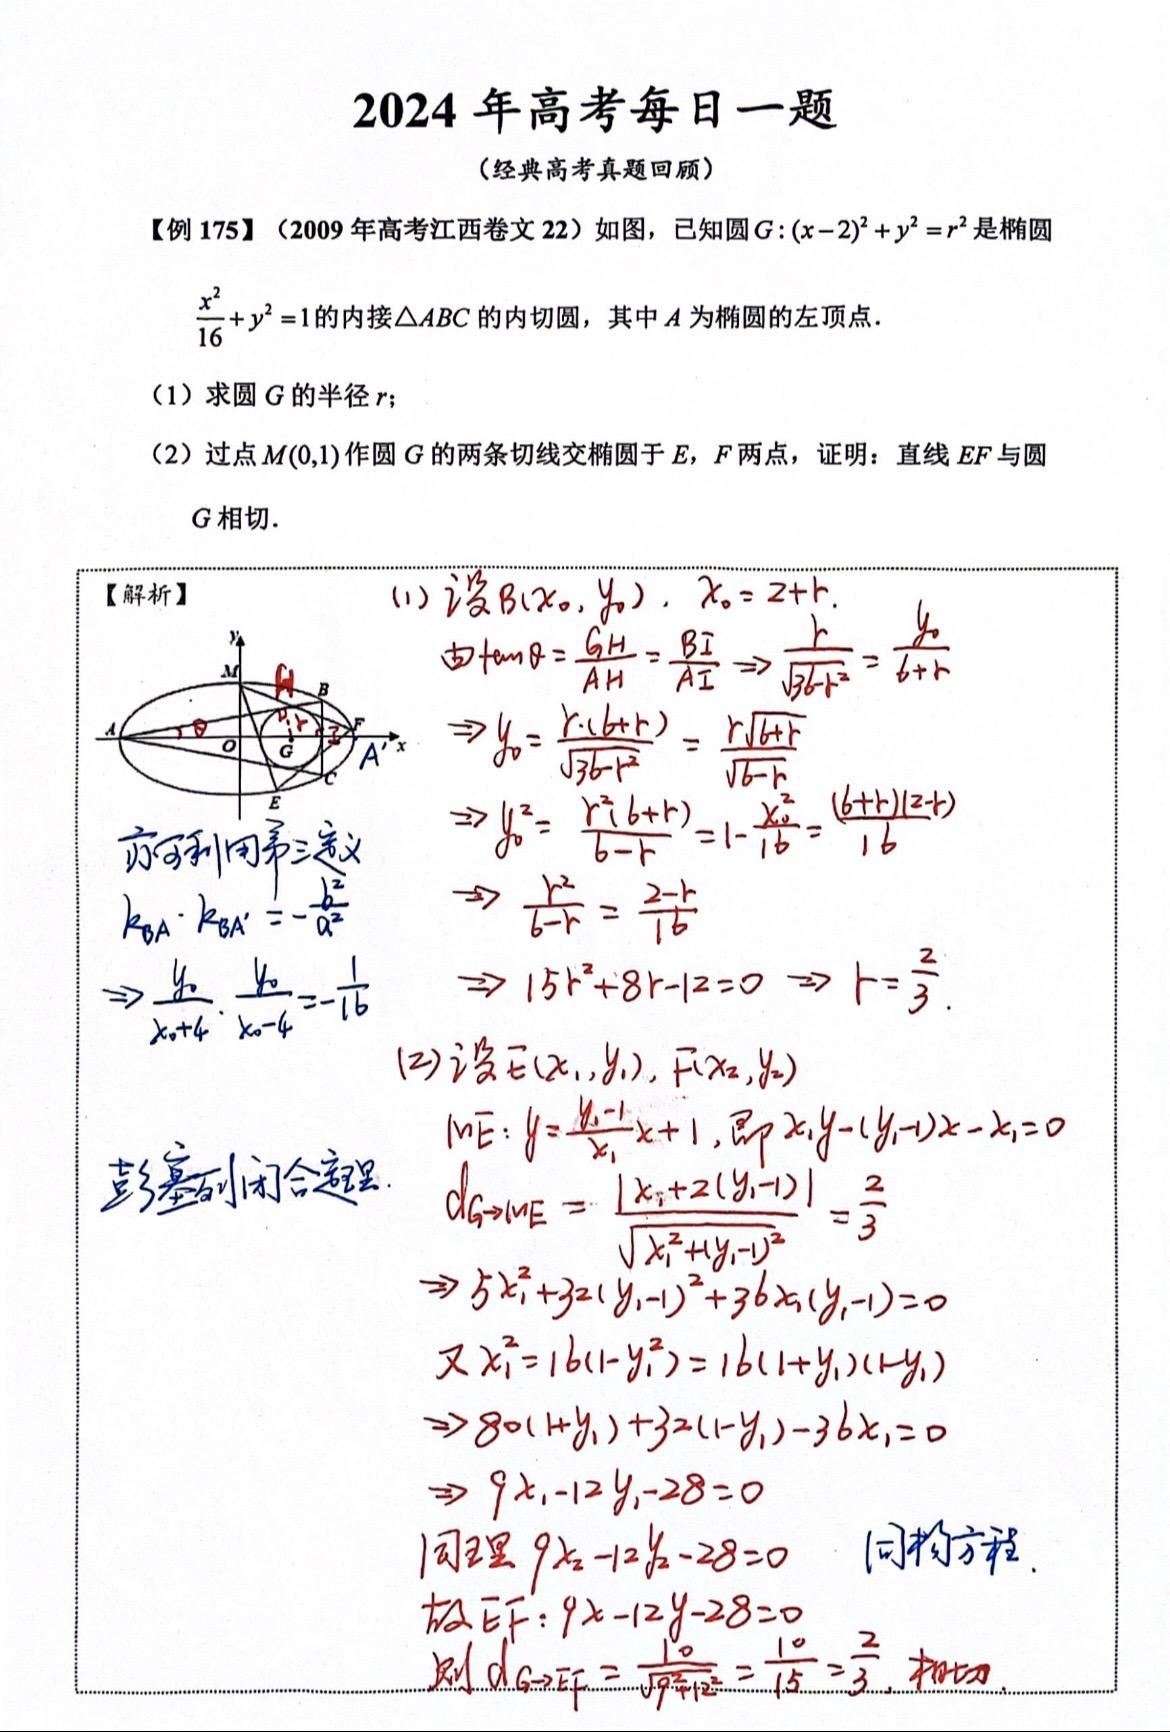 2024 年高考每日一题
（经典高考真题回顾）
【例 175】（2009 年高考江西卷文 22）如图，已知圆 G : (x−2)² + y² = r² 是椭圆
x²/16 + y² = 1 的内接△ABC 的内切圆，其中 A 为椭圆的左顶点.
（1）求圆 G 的半径 r;
（2）过点 M(0,1) 作圆 G 的两条切线交椭圆于 E，F 两点，证明：直线 EF 与圆
G 相切.
【解析】
y
M
H
B
A
θ
r
I
F
O
G
A'
x
C
E
(1) 设B(x₀, y₀), x₀ = 2+r.
由tanθ = GH/AH = BI/AI ⇒ r/√(36-r²) = y₀/(6+r)
⇒ y₀ = r·(6+r)/√(36-r²) = r√(6+r)/√(6-r)
⇒ y₀² = r²(6+r)/(6-r) = 1 - x₀²/16 = (6+r)(2-r)/16
⇒ r²/(6-r) = (2-r)/16
⇒ 15r²+8r-12=0 ⇒ r = 2/3.
亦可利用第三定义
k_BA · k_BA' = -b²/a²
⇒ y₀/(x₀+4) · y₀/(x₀-4) = -1/16
(2) 设E(x₁, y₁), F(x₂, y₂)
ME: y = (y₁-1)/x₁ x + 1, 即 x₁y - (y₁-1)x - x₁ = 0
d_G→ME = |x₁+2(y₁-1)|/√(x₁²+(y₁-1)²) = 2/3
⇒ 5x₁²+32(y₁-1)²+36x₁(y₁-1)=0
又 x₁² = 16(1-y₁²) = 16(1+y₁)(1-y₁)
⇒ 80(1+y₁)+32(1-y₁)-36x₁=0
⇒ 9x₁-12y₁-28=0
同理 9x₂-12y₂-28=0
同构方程.
故EF: 9x-12y-28=0
则 d_G→EF = 10/√(9²+12²) = 10/15 = 2/3. 相切.
彭塞列闭合定理.